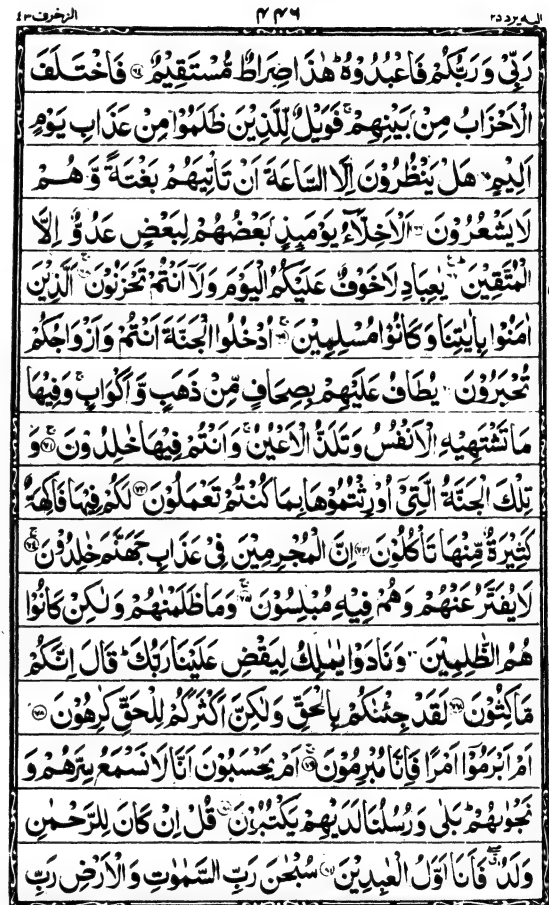 الیه یرد ۲۵ ۴۴۶ الزخرف ۴۳
رَبِّيْ وَرَبُّكُمْ فَاعْبُدُوْهُ ؕ هٰذَا صِرَاطٌ مُّسْتَقِيْمٌ ﴿۶۴﴾ فَاخْتَلَفَ
الْاَحْزَابُ مِنْۢ بَيْنِهِمْ ۚ فَوَيْلٌ لِّلَّذِيْنَ ظَلَمُوْا مِنْ عَذَابِ يَوْمٍ
اَلِيْمٍ ﴿۶۵﴾ هَلْ يَنْظُرُوْنَ اِلَّا السَّاعَةَ اَنْ تَاْتِيَهُمْ بَغْتَةً وَّهُمْ
لَا يَشْعُرُوْنَ ﴿۶۶﴾ اَلْاَخِلَّآءُ يَوْمَئِذٍۭ بَعْضُهُمْ لِبَعْضٍ عَدُوٌّ اِلَّا
الْمُتَّقِيْنَ ﴿۶۷﴾ يٰعِبَادِ لَا خَوْفٌ عَلَيْكُمُ الْيَوْمَ وَلَاۤ اَنْتُمْ تَحْزَنُوْنَ ۚ﴿۶۸﴾ اَلَّذِيْنَ
اٰمَنُوْا بِاٰيٰتِنَا وَكَانُوْا مُسْلِمِيْنَ ۚ﴿۶۹﴾ اُدْخُلُوا الْجَنَّةَ اَنْتُمْ وَاَزْوَاجُكُمْ
تُحْبَرُوْنَ ﴿۷۰﴾ يُطَافُ عَلَيْهِمْ بِصِحَافٍ مِّنْ ذَهَبٍ وَّاَكْوَابٍ ۚ وَفِيْهَا
مَا تَشْتَهِيْهِ الْاَنْفُسُ وَتَلَذُّ الْاَعْيُنُ ۚ وَاَنْتُمْ فِيْهَا خٰلِدُوْنَ ۚ﴿۷۱﴾ وَ
تِلْكَ الْجَنَّةُ الَّتِيْۤ اُوْرِثْتُمُوْهَا بِمَا كُنْتُمْ تَعْمَلُوْنَ ﴿۷۲﴾ لَكُمْ فِيْهَا فَاكِهَةٌ
كَثِيْرَةٌ مِّنْهَا تَاْكُلُوْنَ ﴿۷۳﴾ اِنَّ الْمُجْرِمِيْنَ فِيْ عَذَابِ جَهَنَّمَ خٰلِدُوْنَ ۚ﴿۷۴﴾
لَا يُفَتَّرُ عَنْهُمْ وَهُمْ فِيْهِ مُبْلِسُوْنَ ۚ﴿۷۵﴾ وَمَا ظَلَمْنٰهُمْ وَلٰكِنْ كَانُوْا
هُمُ الظّٰلِمِيْنَ ﴿۷۶﴾ وَنَادَوْا يٰمٰلِكُ لِيَقْضِ عَلَيْنَا رَبُّكَ ؕ قَالَ اِنَّكُمْ
مّٰكِثُوْنَ ﴿۷۷﴾ لَقَدْ جِئْنٰكُمْ بِالْحَقِّ وَلٰكِنَّ اَكْثَرَكُمْ لِلْحَقِّ كٰرِهُوْنَ ﴿۷۸﴾
اَمْ اَبْرَمُوْۤا اَمْرًا فَاِنَّا مُبْرِمُوْنَ ۚ﴿۷۹﴾ اَمْ يَحْسَبُوْنَ اَنَّا لَا نَسْمَعُ سِرَّهُمْ وَ
نَجْوٰىهُمْ ؕ بَلٰى وَرُسُلُنَا لَدَيْهِمْ يَكْتُبُوْنَ ﴿۸۰﴾ قُلْ اِنْ كَانَ لِلرَّحْمٰنِ
وَلَدٌ ۖ فَاَنَا اَوَّلُ الْعٰبِدِيْنَ ﴿۸۱﴾ سُبْحٰنَ رَبِّ السَّمٰوٰتِ وَالْاَرْضِ رَبِّ